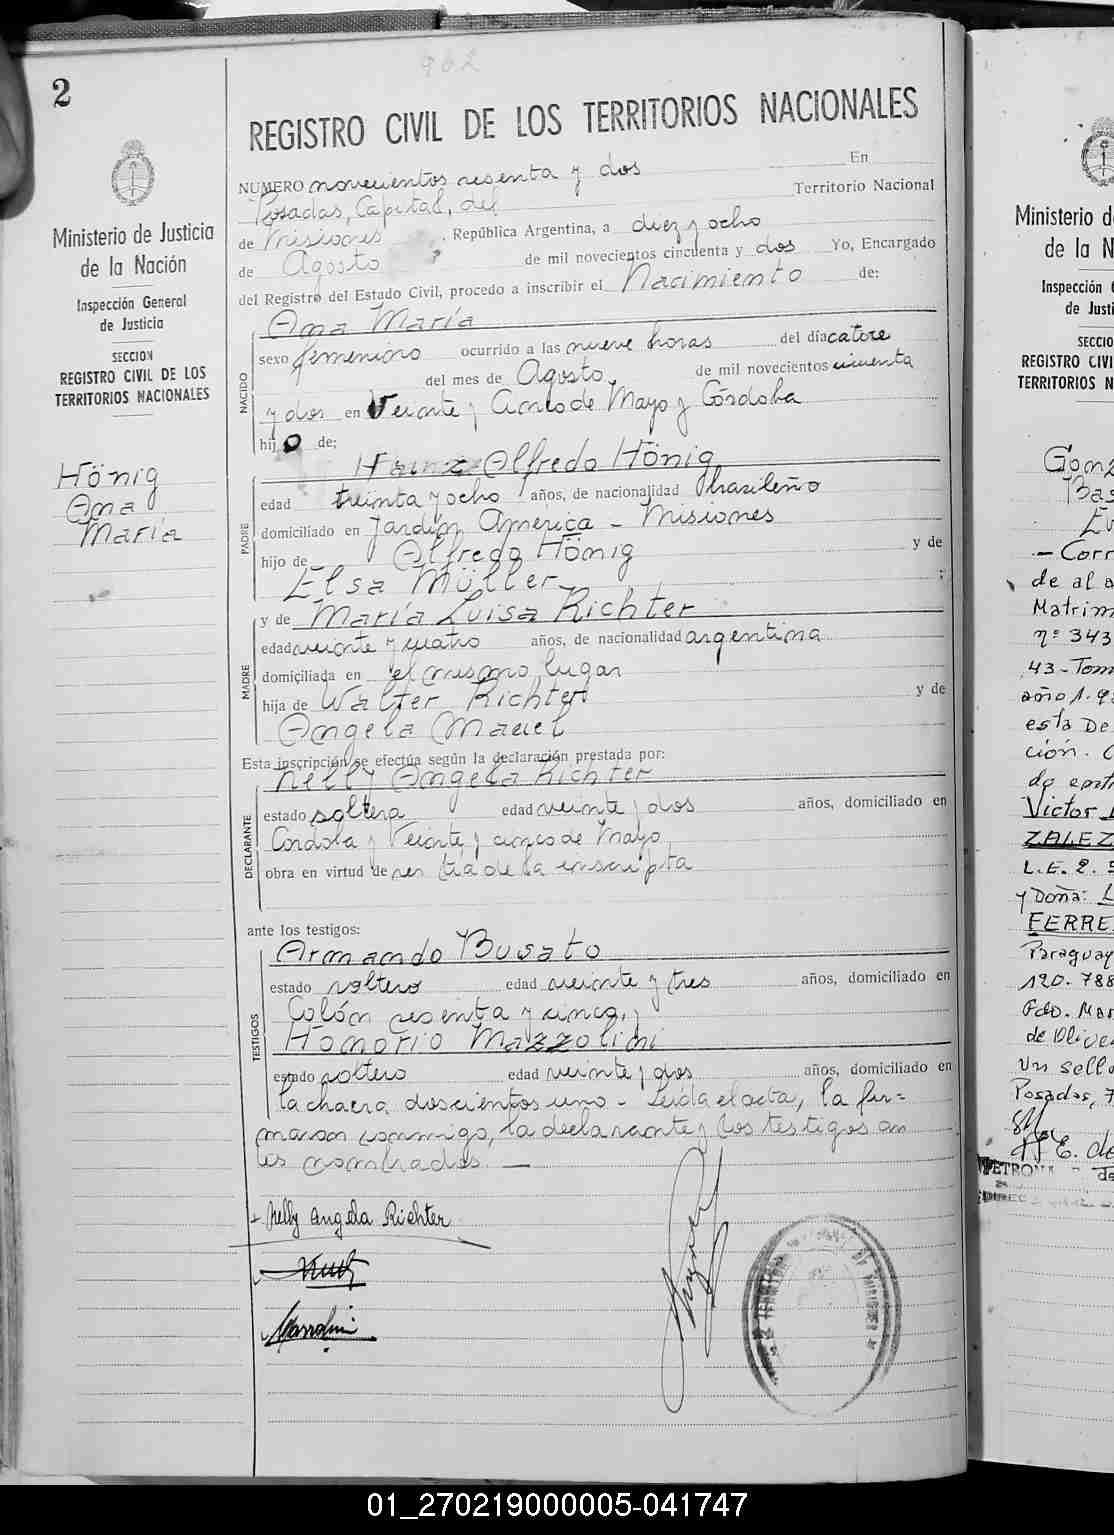 962
2
REGISTRO CIVIL DE LOS TERRITORIOS NACIONALES
Ministerio de Justicia
de la Nación
Inspección General
de Justicia
SECCION
REGISTRO CIVIL DE LOS
TERRITORIOS NACIONALES
Hönig
Ana
María
NUMERO novecientos sesenta y dos En
Posadas, Capital, del Territorio Nacional
de Misiones, República Argentina, a diez y ocho
de Agosto de mil novecientos cincuenta y dos Yo, Encargado
del Registro del Estado Civil, procedo a inscribir el Nacimiento de:
NACIDO
Ana María
sexo femenino ocurrido a las nueve horas del día catorce
del mes de Agosto de mil novecientos cincuenta
y dos en Veinte y Cinco de Mayo y Córdoba
hijo de:
PADRE
Franz Alfredo Hönig
edad treinta y ocho años, de nacionalidad brasileño
domiciliado en Jardín América - Misiones
hijo de Alfredo Hönig y de
Elsa Müller ;
MADRE
y de María Luisa Richter
edad veinte y cuatro años, de nacionalidad argentina
domiciliada en el mismo lugar
hija de Walter Richter y de
Angela Maciel
Esta inscripción se efectúa según la declaración prestada por:
DECLARANTE
Nelly Angela Richter
estado soltera edad veinte y dos años, domiciliado en
Cordoba y Veinte y cinco de Mayo
obra en virtud de ser tia de la inscripta
ante los testigos:
TESTIGOS
Armando Busato
estado soltero edad veinte y tres años, domiciliado en
Colón sesenta y cinco, y
Honorio Mazzolini
estado soltero edad veinte y dos años, domiciliado en
la chacra doscientos uno - Leida el acta, la fir=
maron conmigo, la declarante y los testigos an
tes nombrados. —
Nelly Angela Richter
Mazzolini
Ministerio d
de la N
Inspección
de Justi
SECCIO
REGISTRO CIVI
TERRITORIOS N
Gonz
Bas
- Corr
de al
Matrim
nº 343
43 - Tom
año 1.9
esta De
ción.
do
Victor
ZALEZ
L.E. 2.
y Doña: L
FERRE
Paraguay
120.788
Fdo. Mar
de Olive
Un sello
Posadas, 7
E. de
PETRONA
DIREC
01_270219000005-041747